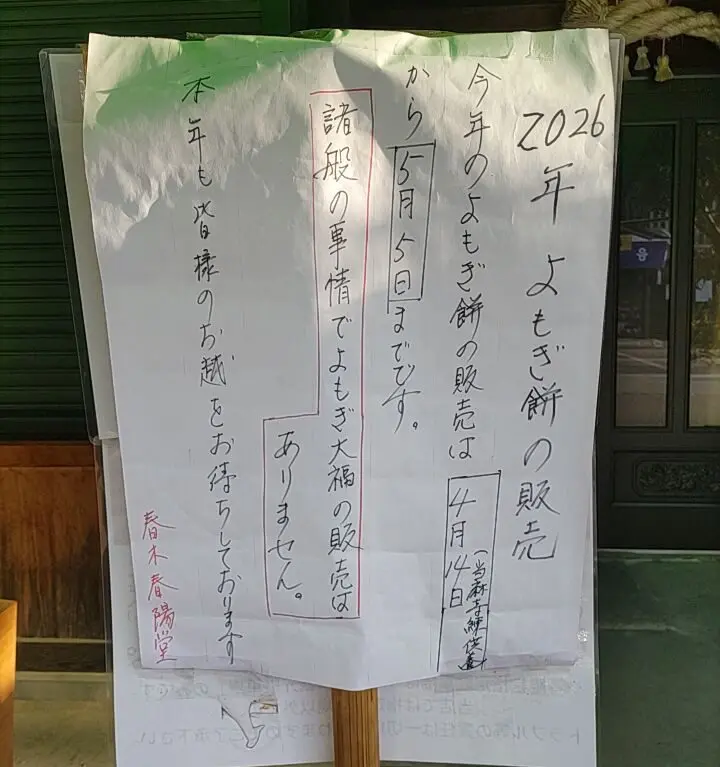 2026年 よもぎ餅の販売
今年のよもぎ餅の販売は 4月14日
(当麻寺練供養)
から 5月5日までです。
諸般の事情でよもぎ大福の販売は
ありません。
本年も皆様のお越をお待ちしております
春木春陽堂